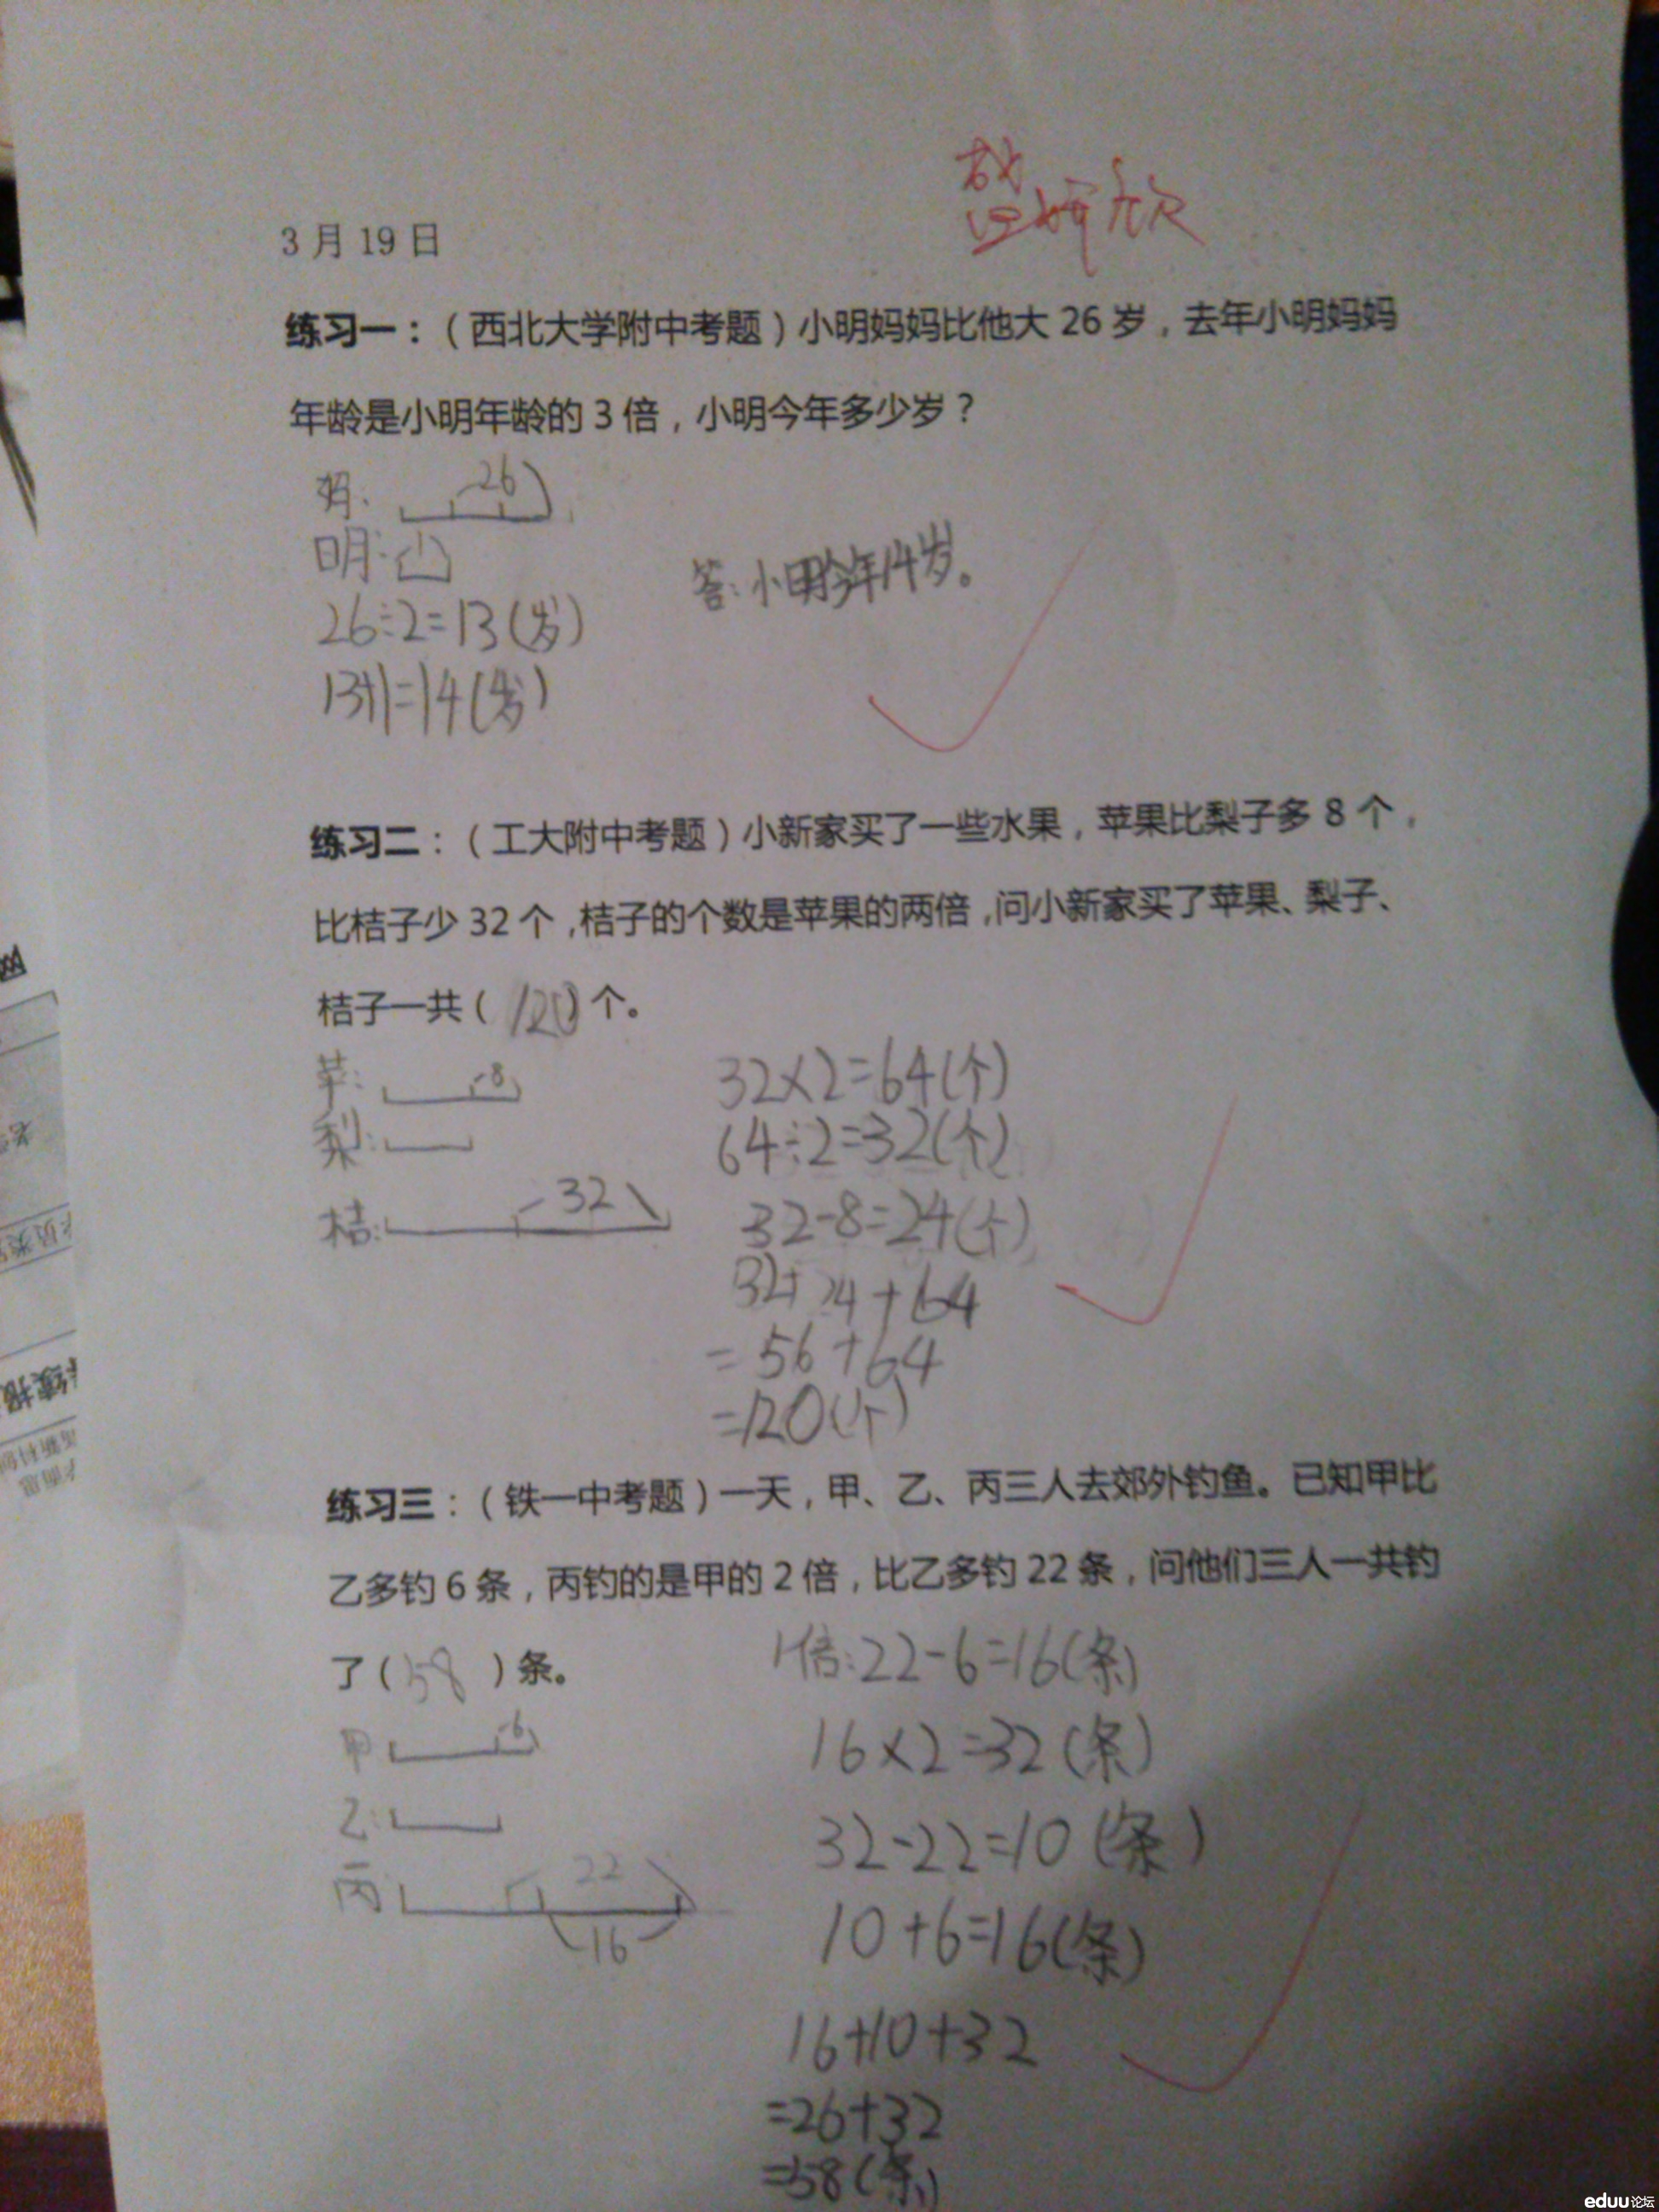 3月19日
练习一：（西北大学附中考题）小明妈妈比他大26岁，去年小明妈妈
年龄是小明年龄的3倍，小明今年多少岁？
妈：26
明：1
26÷2=13（岁）
13+1=14（岁）
答：小明今年14岁。
练习二：（工大附中考题）小新家买了一些水果，苹果比梨子多8个，
比桔子少32个，桔子的个数是苹果的两倍，问小新家买了苹果、梨子、
桔子一共（120）个。
苹：8
梨：
桔：32
32×2=64（个）
64÷2=32（个）
32-8=24（个）
32+24+64
=56+64
=120（个）
练习三：（铁一中考题）一天，甲、乙、丙三人去郊外钓鱼。已知甲比
乙多钓6条，丙钓的是甲的2倍，比乙多钓22条，问他们三人一共钓
了（58）条。
甲 6
乙：
丙 22
16
1倍：22-6=16（条）
16×2=32（条）
32-22=10（条）
10+6=16（条）
16+10+32
=26+32
=58（条）
eduu论坛